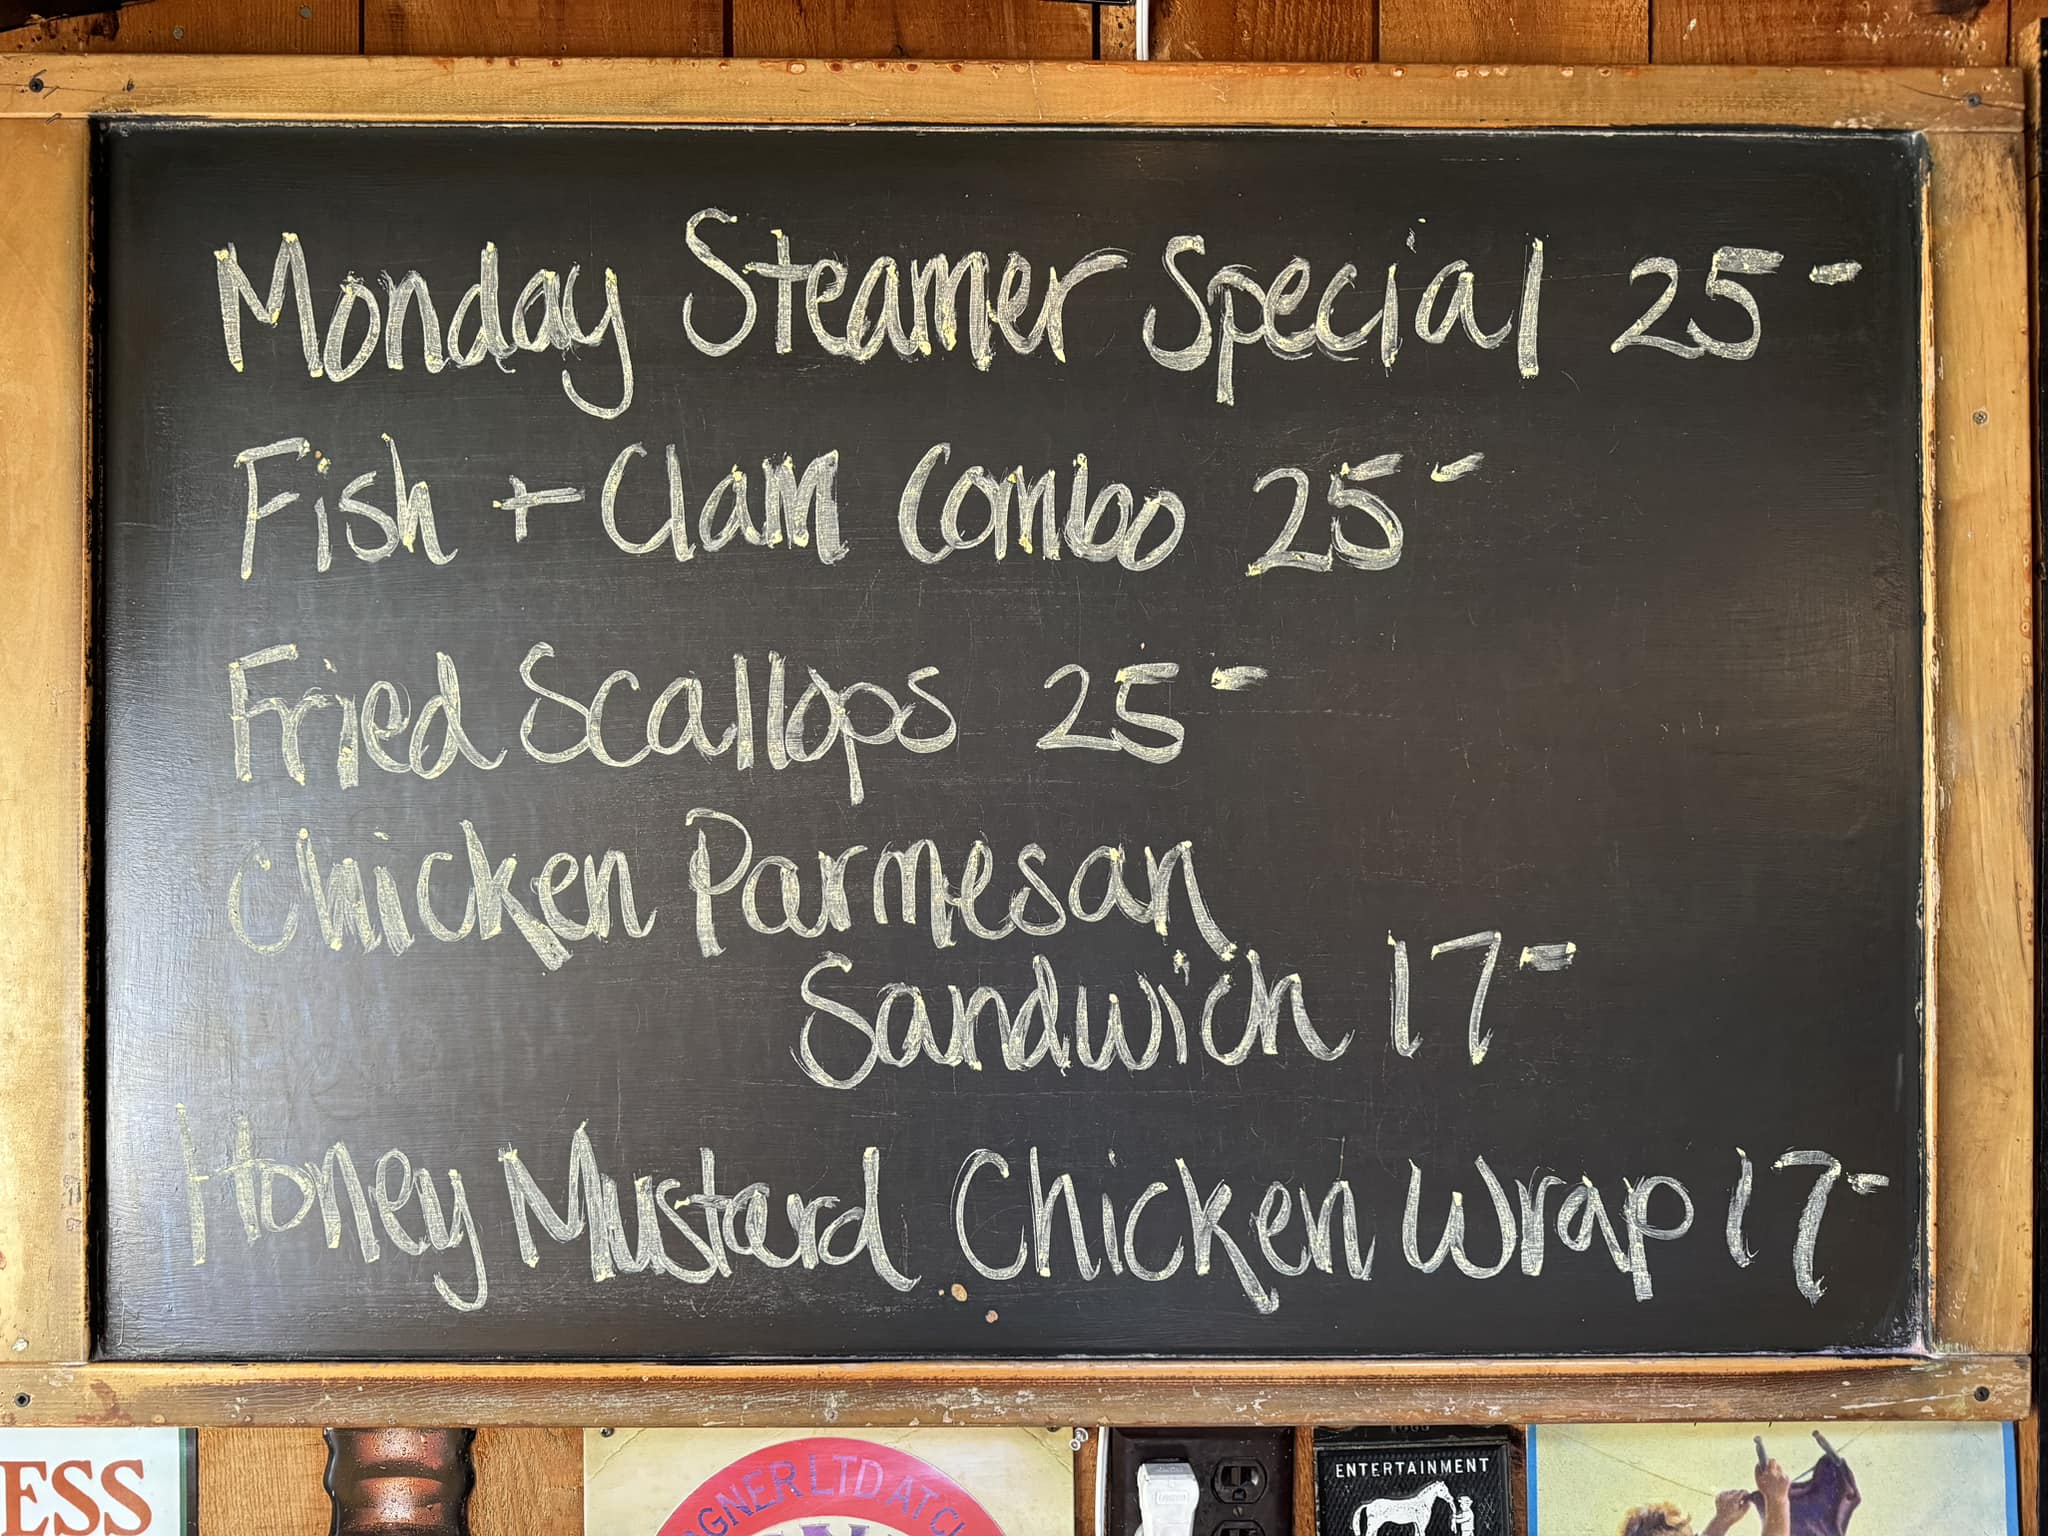 Monday Steamer Special 25-
Fish + Clam Combo 25-
Fried Scallops 25-
Chicken Parmesan
Sandwich 17-
Honey Mustard Chicken Wrap 17-
ESS
GNER LTD AT
ENTERTAINMENT